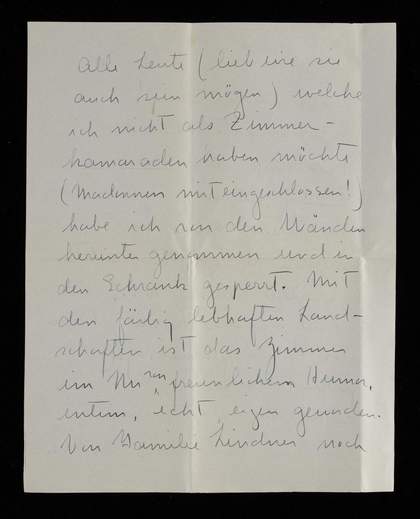 Alle Leute (lieb wie sie
auch sein mögen) welche
ich nicht als Zimmer-
kamaraden haben möchte
(Madonnen miteingeschlossen!)
habe ich von den Wänden
herunter genommen und in
den Schrank gesperrt. Mit
den färbig lebhaften Land-
schaften ist das Zimmer
im Nu von freundlichem Humor,
intim, echt eigen geworden.
Von Familie Lindner noch